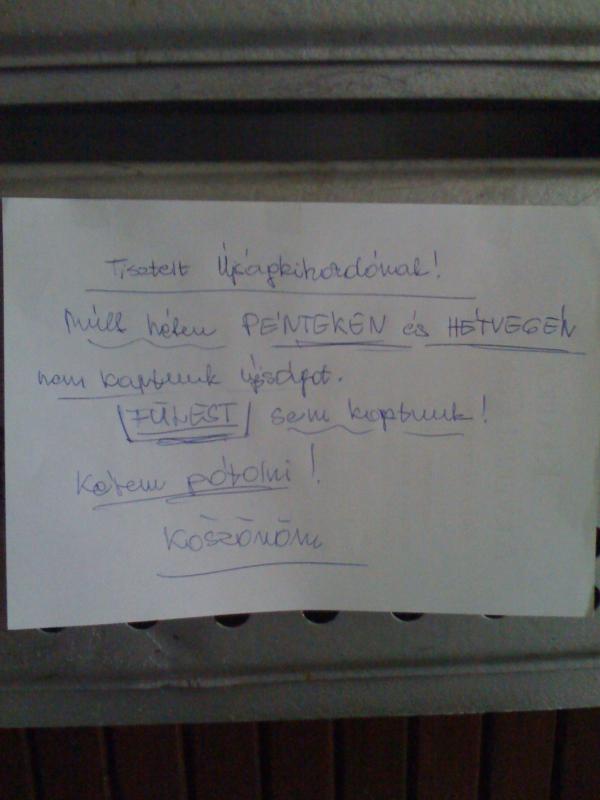 Tisztelt Újságkihordónak!
Múlt héten PÉNTEKEN és HÉTVÉGÉN
nem kaptunk újságot.
FÜLEST sem kaptunk!
Kérem pótolni!
Köszönöm